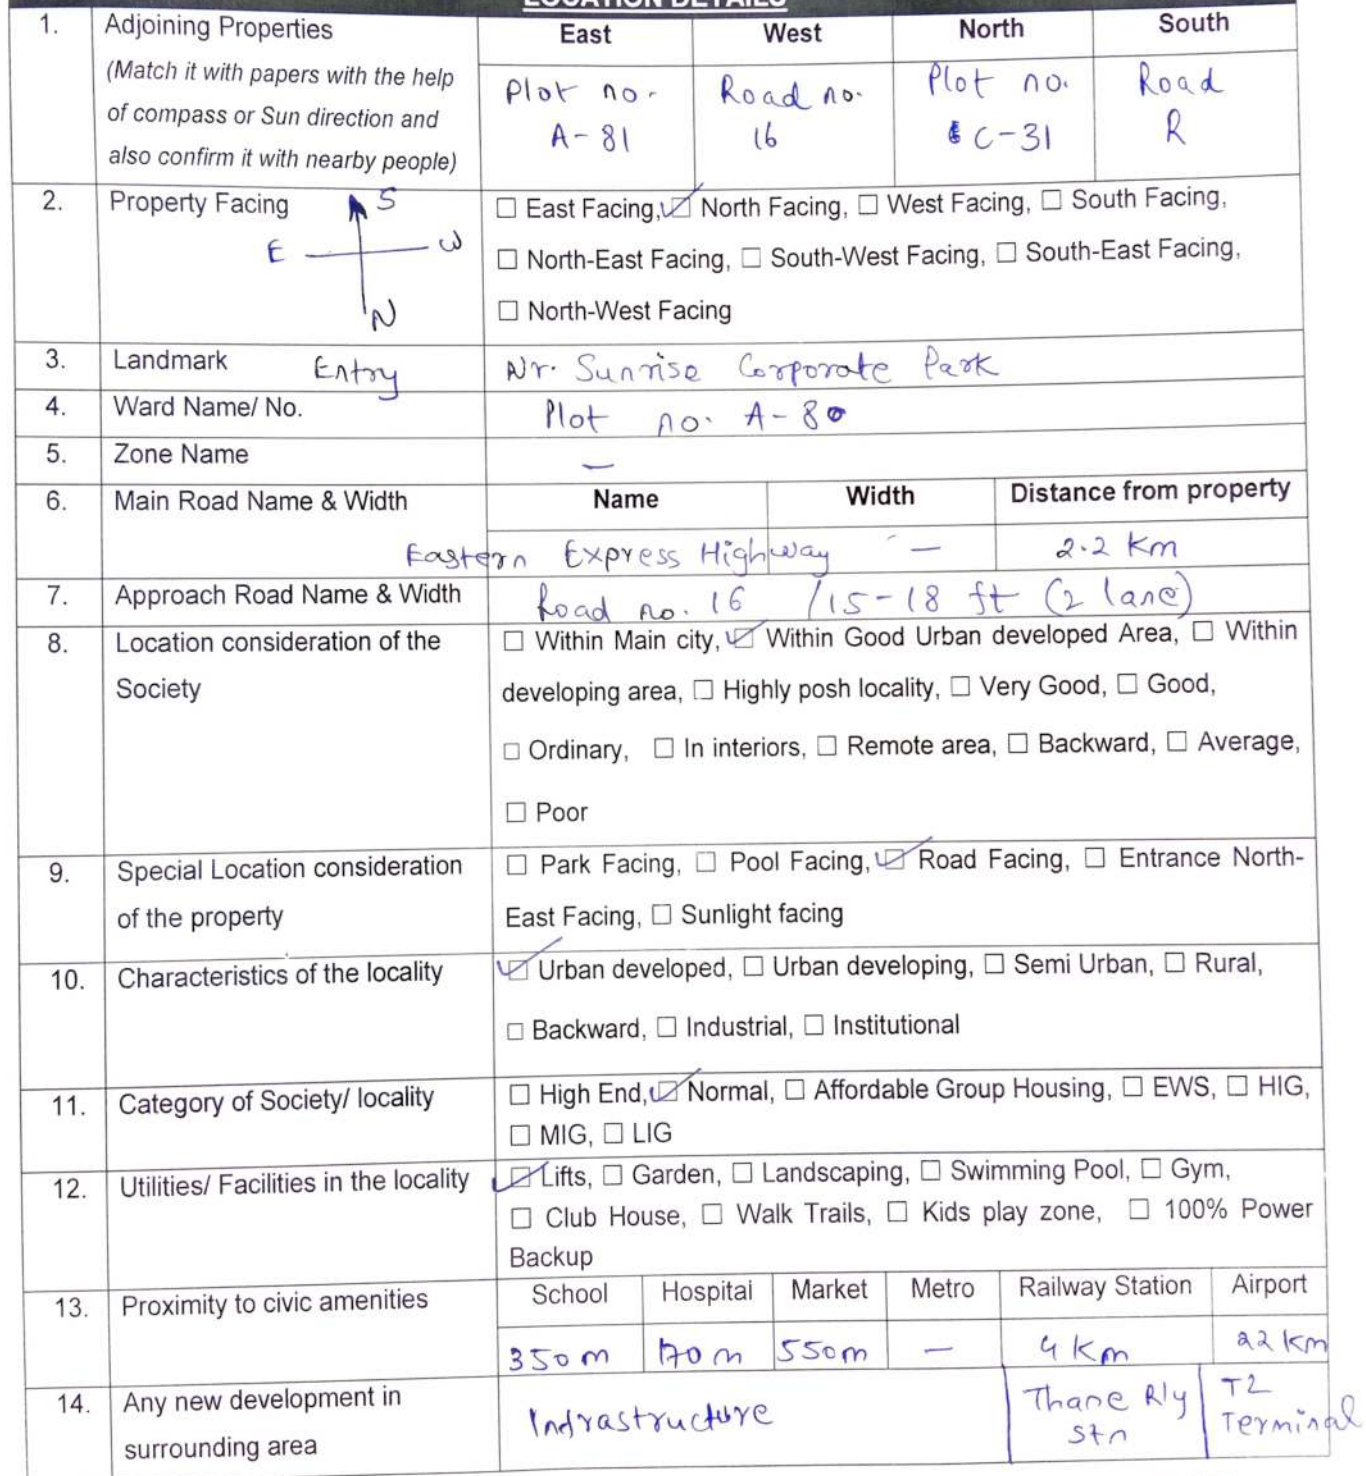 LOCATION DETAILS
1. Adjoining Properties East West North South
(Match it with papers with the help
of compass or Sun direction and
also confirm it with nearby people)
Plot no. Road no. Plot no. Road
A-81 16 C-31 R
2. Property Facing
S
E W
N
☐ East Facing, ☑ North Facing, ☐ West Facing, ☐ South Facing,
☐ North-East Facing, ☐ South-West Facing, ☐ South-East Facing,
☐ North-West Facing
3. Landmark Entry Nr. Sunrise Corporate Park
4. Ward Name/ No. Plot no. A-80
5. Zone Name —
6. Main Road Name & Width Name Width Distance from property
Eastern Express Highway — 2.2 Km
7. Approach Road Name & Width Road no. 16 /15-18 ft (2 lane)
8. Location consideration of the
Society
☐ Within Main city, ☑ Within Good Urban developed Area, ☐ Within
developing area, ☐ Highly posh locality, ☐ Very Good, ☐ Good,
☐ Ordinary, ☐ In interiors, ☐ Remote area, ☐ Backward, ☐ Average,
☐ Poor
9. Special Location consideration
of the property
☐ Park Facing, ☐ Pool Facing, ☑ Road Facing, ☐ Entrance North-
East Facing, ☐ Sunlight facing
10. Characteristics of the locality
☑ Urban developed, ☐ Urban developing, ☐ Semi Urban, ☐ Rural,
☐ Backward, ☐ Industrial, ☐ Institutional
11. Category of Society/ locality
☐ High End, ☑ Normal, ☐ Affordable Group Housing, ☐ EWS, ☐ HIG,
☐ MIG, ☐ LIG
12. Utilities/ Facilities in the locality
☑ Lifts, ☐ Garden, ☐ Landscaping, ☐ Swimming Pool, ☐ Gym,
☐ Club House, ☐ Walk Trails, ☐ Kids play zone, ☐ 100% Power
Backup
13. Proximity to civic amenities School Hospital Market Metro Railway Station Airport
350m 170m 550m — 4 Km 22 Km
14. Any new development in
surrounding area
Infrastructure
Thane Rly
Stn
T2
Terminal